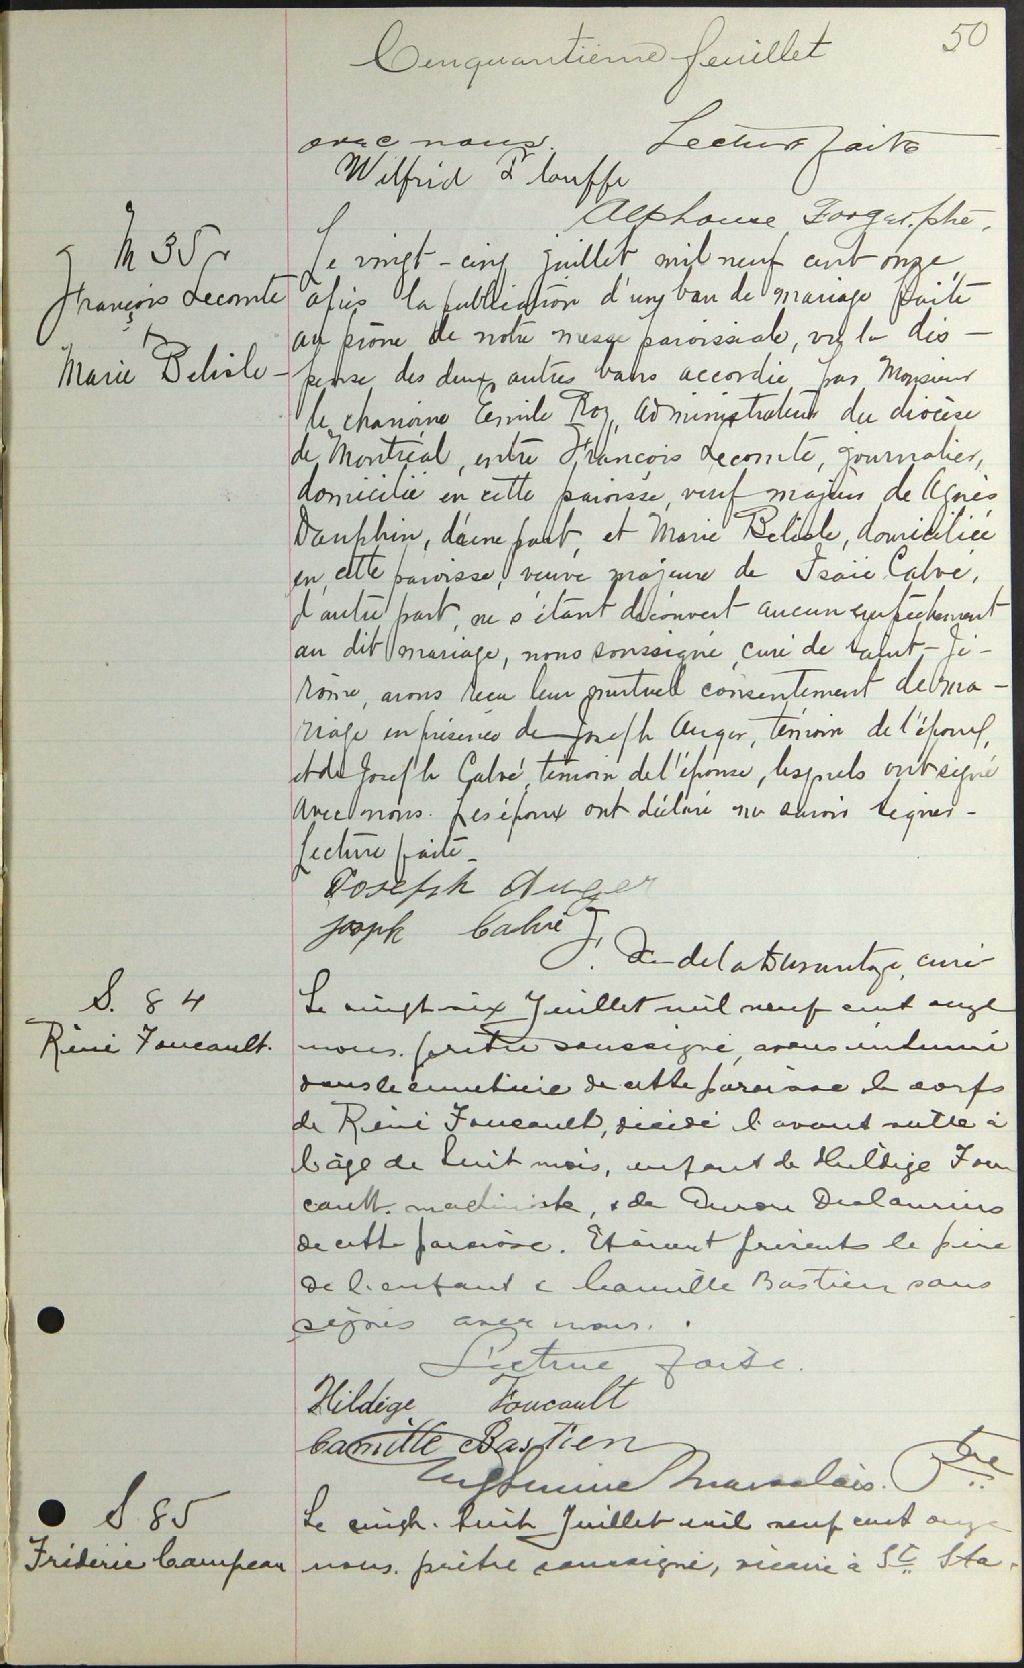 50
Cinquantième feuillet
avec nous. Lecture faite
Wilfrid Plouffe
Alphonse Forget, ptre.
M 35
François Lecomte
&
Marie Belisle
Le vingt-cinq juillet mil neuf cent onze,
après la publication d'un ban de mariage faite
au prône de notre messe paroissiale, vu la dis-
pense des deux autres bans accordée par Monsieur
le chanoine Emile Roy, administrateur du diocèse
de Montréal, entre François Lecomte, journalier,
domicilié en cette paroisse, veuf majeur de Agnès
Dauphin, d'une part, et Marie Belisle, domiciliée
en cette paroisse, veuve majeure de Isaïe Calvé,
d'autre part, ne s'étant découvert aucun empêchement
au dit mariage, nous soussigné, curé de Saint-Jé-
rôme, avons reçu leur mutuel consentement de ma-
riage en présence de Joseph Auger, témoin de l'époux,
et de Joseph Calvé, témoin de l'épouse, lesquels ont signé
avec nous. Les époux ont déclaré ne savoir signer-
Lecture faite-
Joseph Auger
Josph Calvé
J. De de la Durantaye, curé
S. 84
Réné Foucault.
Le vingt-six Juillet mil neuf cent onze
nous. prêtre soussigné, avons inhumé
dans le cimetière de cette paroisse le corps
de Réné Foucault, décédé l'avant veille à
l'âge de huit mois, enfant de Huldige Fou
cault. machiniste, & de Deslauriers
de cette paroisse. Etaient présents le père
de l'enfant & Camille Bastien sous
signés avec nous.
Lecture faite.
Hildége Foucault
Camille Bastien
Marsolais. Ptre
S 85
Fréderic Campeau
Le vingt-huit Juillet mil neuf cent onze
nous. prêtre soussigné, vicaire à St Sta-